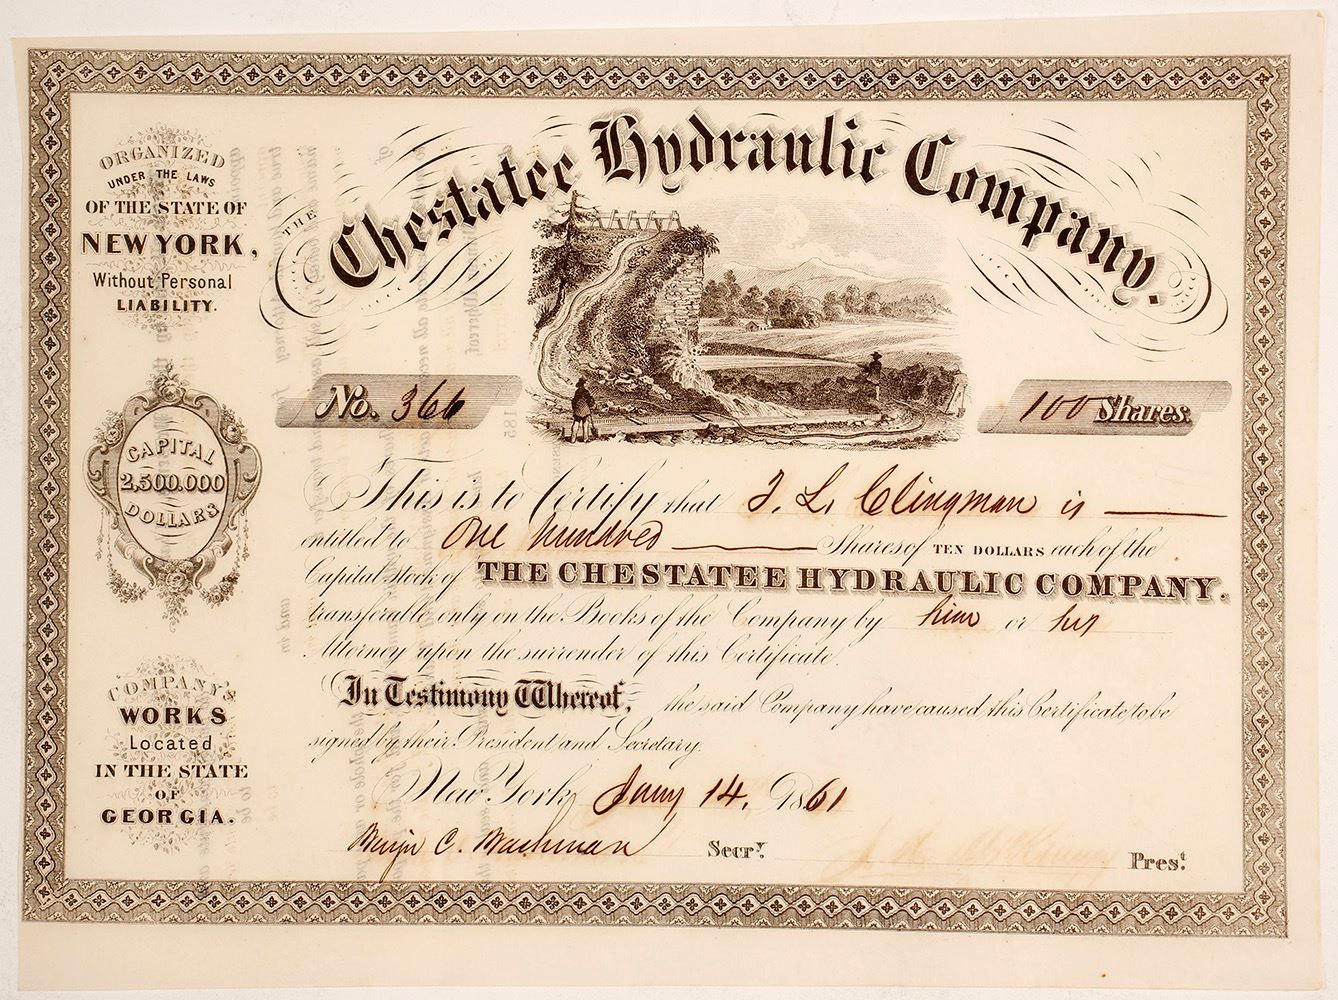 THE Chestatee Hydraulic Company.
ORGANIZED
UNDER THE LAWS
OF THE STATE OF
NEW YORK,
Without Personal
LIABILITY.
No. 366
100 Shares.
CAPITAL
2,500.000
DOLLARS
This is to Certify that T. L. Clingman is
entitled to One hundred Shares of TEN DOLLARS each of the
Capital Stock of THE CHESTATEE HYDRAULIC COMPANY.
transferable only on the Books of the Company by him or his
Attorney upon the surrender of this Certificate.
In Testimony Whereof, the said Company have caused this Certificate to be
signed by their President and Secretary.
COMPANY'S
WORKS
Located
IN THE STATE
OF
GEORGIA.
New York, Jany 14, 1861
Benjn C. Secry. Prest.